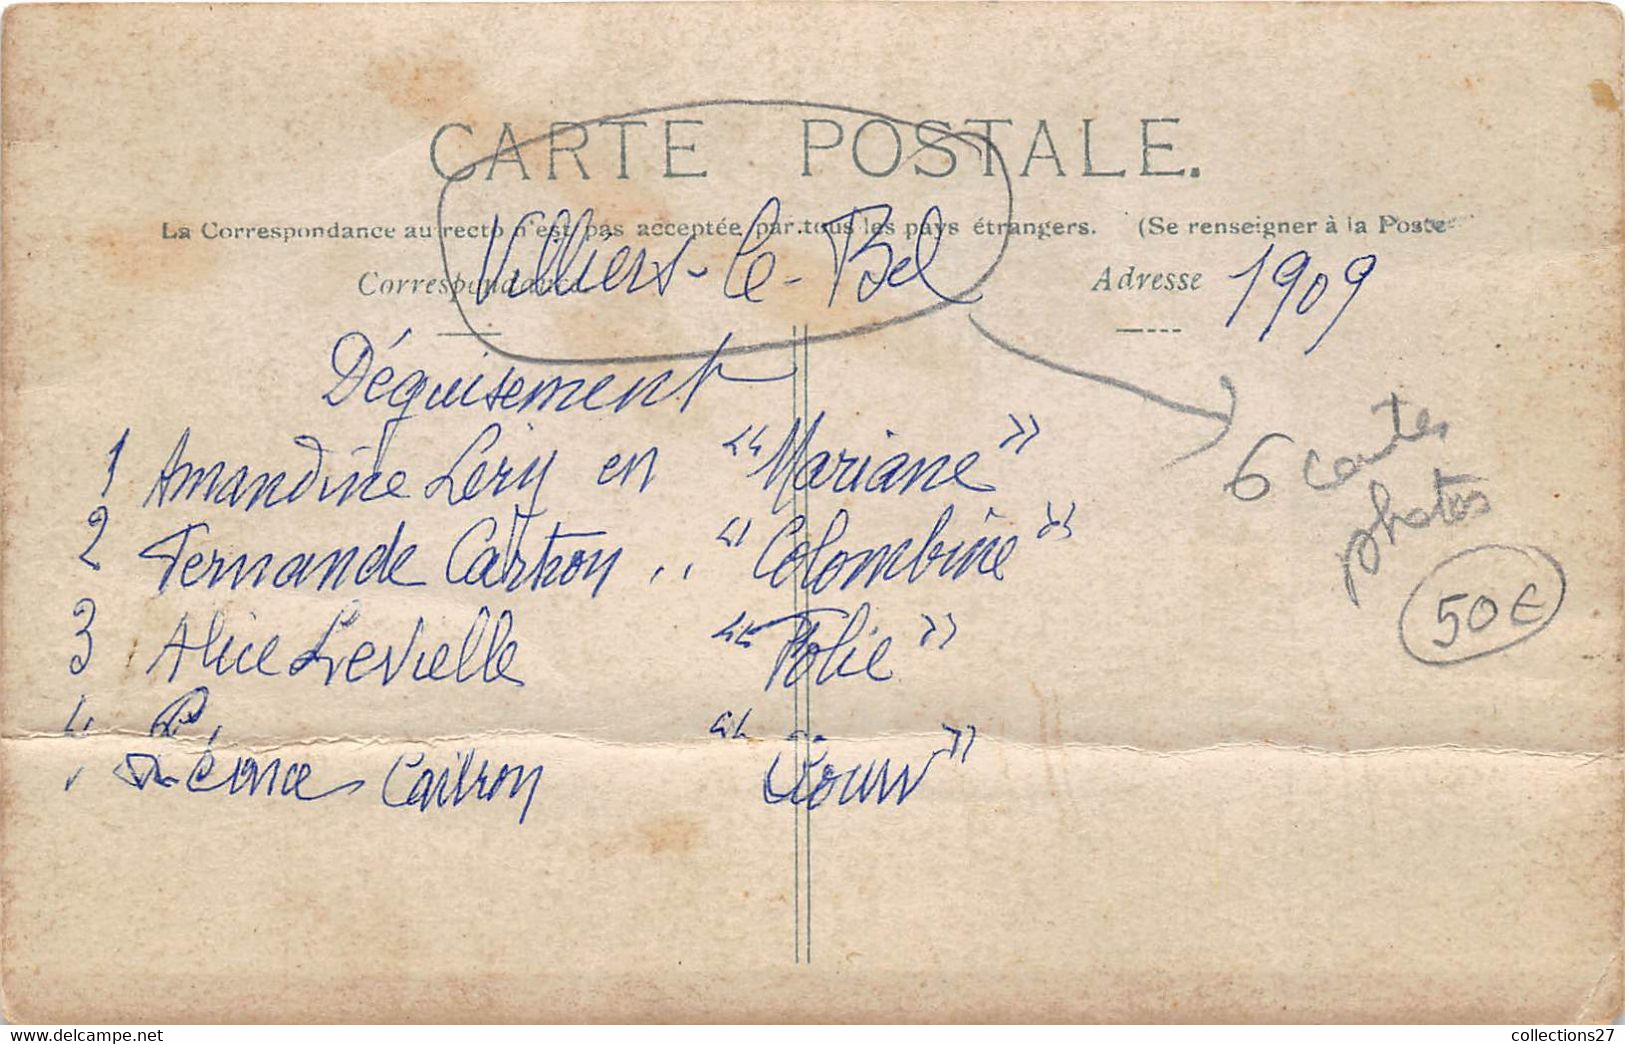 CARTE POSTALE.
La Correspondance au recto n'est pas acceptée par tous les pays étrangers. (Se renseigner à la Poste
Correspondance Adresse
Villiers-le-Bel 1909
Déguisement
1 Amandine Lery en "Mariane"
2 Fernande Cartron .. "Colombine"
3 Alice Levielle "Folie"
"
6 cartes
photos
50€
collections27